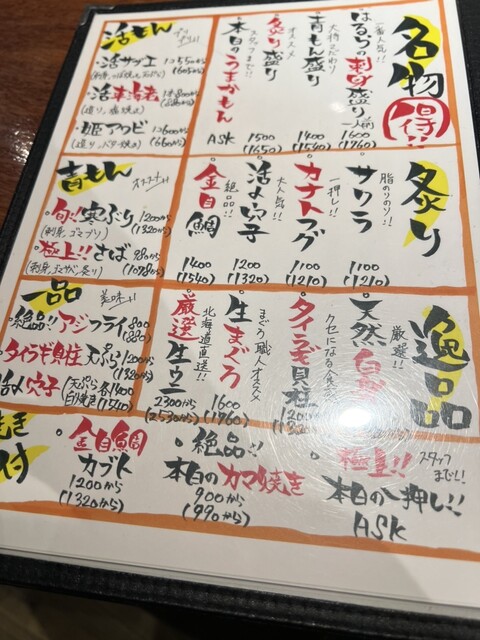 名物
得!!
一番人気!!
はるつの刺身盛り
一人前
1600
(1760)
大将こだわり
青もん盛り
1400
(1540)
オススメ
炙り盛り
1500
(1650)
スタッフまで!!
本日のうまかもん
ASK
活もん
・活サザエ 1コ550から
(605から)
(刺身、つぼ焼き、天ぷら)
・活
(造り、塩焼き)
・姫アワビ 1コ600から
(造り、バター焼き) (660から)
炙り
脂のりのり!!
サクラ
1100
(1210)
一押し!!
カナトフグ
1100
(1210)
大人気!!
活よい穴子
1200
(1320)
絶品!!
金目鯛
1400
(1540)
青もん
オススメ!!
旬!!寒ぶり 1200から
(1320から)
極上!!さば 980から
(1078から)
逸品
厳選!!
天然
クセになる食感
タイラギ貝柱
まぐろ職人オススメ
生まぐろ
1600
(1760)
北海道直送!!
厳選生ウニ
2300から
(2530から)
一品
美味!!
絶品!!アジフライ 800
(880)
タイラギ貝柱天ぷら 1200から
(1320から)
活よい穴子 (天ぷら 白焼き) 各1400
(1540)
金目鯛
カブト
1200から
(1320から)
・絶品!!
本日のカマ焼き
900から
(990から)
極上!!
スタッフまで!!
本日の一押し!!
ASK